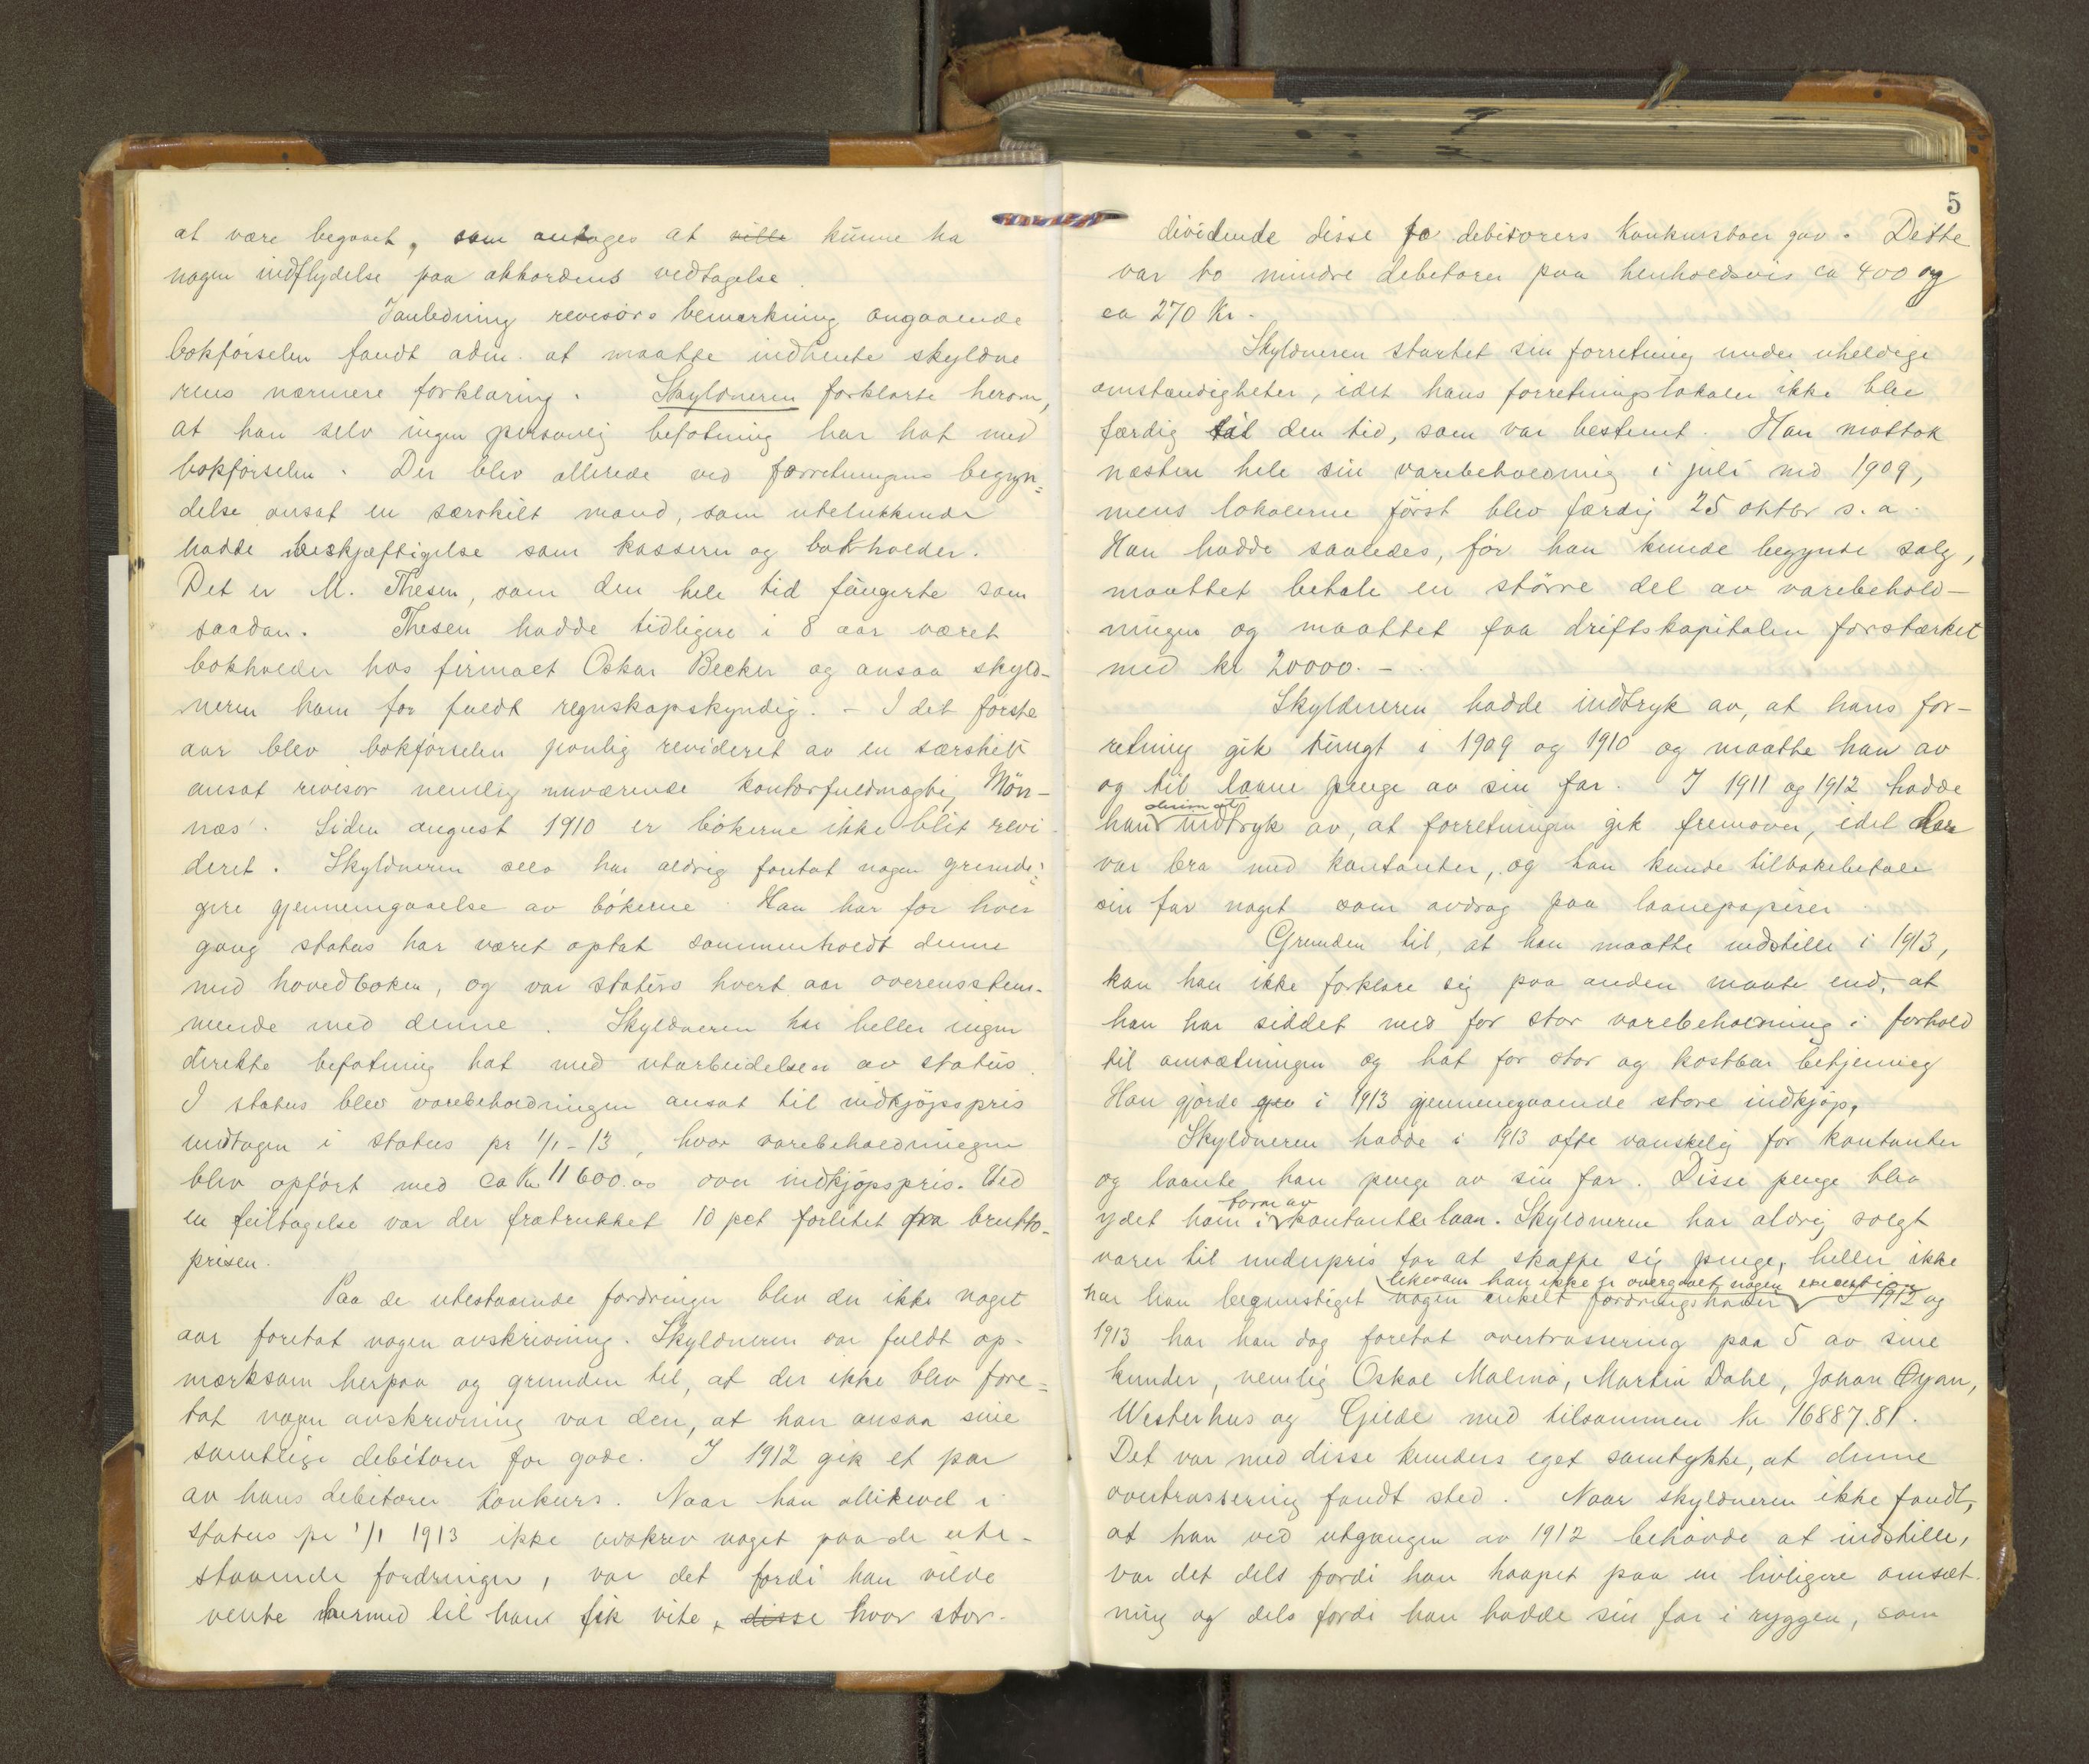 at være begaaet, som antages at ville kunne ha
nogen indflydelse paa akkordens vedtagelse.
I anledning revisors bemerkning angaaende
bokførselen fandt adm. at maatte indhente skyldne
rens nærmere forklaring. Skyldneren forklarte herom,
at han selv ingen personlig befatning har hat med
bokførselen. Der blev allerede ved forretningens begyn=
delse ansat en særskilt mand, som utelukkende
hadde beskjæftigelse som kasserer og bokholder.
Det er M. Thesen, som den hele tid fungerte som
saadan. Thesen hadde tidligere i 8 aar været
bokholder hos firmaet Oskar Becker og ansaa skyld-
neren ham for fuldt regnskapskyndig. - I det første
aar blev bokførselen jevnlig revideret av en særskilt
ansat revisor nemlig nuværende kontorfuldmægtig Møn-
næs. Siden august 1910 er bøkerne ikke blit revi-
deret. Skyldneren selv har aldrig foretat nogen grundi=
gere gjennemgaaelse av bøkerne. Han har for hver
gang status har været optat sammenholdt denne
med hovedboken, og var status hvert aar overensstem-
mende med denne. Skyldneren har heller ingen
direkte befatning hat med utarbeidelsen av status.
I status blev varebeholdningen ansat til indkjøpspris
undtagen i status pr 1/1-13, hvor varebeholdningen
blev opført med ca Kr 11600.00 over indkjøpspris. Ved
en feiltagelse var der fratrukket 10 pct forlitet fra brutto-
prisen.
Paa de utestaaende fordringer blev der ikke noget
aar foretat nogen avskrivning. Skyldneren var fuldt op-
merksom herpaa og grunden til, at der ikke blev fore=
tat nogen avskrivning var den, at han ansaa sine
samtlige debitorer for gode. I 1912 gik et par
av hans debitorer konkurs. Naar han allikevel i
status pr 1/1 1913 ikke avskrev noget paa de ute-
staaende fordringer, var det fordi han vilde
vente hermed til han fik vite, disse hvor stor
5
dividende disse to debitorers konkursboer gav. Dette
var to mindre debitorer paa henholdsvis ca 400 og
ca 270 Kr.
Skyldneren startet sin forretning under uheldige
omstændigheter, idet hans forretningslokaler ikke blev
færdig til den tid, som var bestemt. Han mottok
næsten hele sin varebeholdning i juli md 1909,
mens lokalerne først blev færdig 25 oktbr s. a.
Han hadde saaledes, før han kunde begynde salg,
maattet betale en større del av varebehold-
ningen og maattet faa driftskapitalen forstærket
med kr 20000.-
Skyldneren hadde indtryk av, at hans for-
retning gik tungt i 1909 og 1910 og maatte han av
og til laane penge av sin far. I 1911 og 1912 hadde
han indtryk av, at forretningen gik fremover, idet han
var bra med kontanter, og han kunde tilbakebetale
sin far noget som avdrag paa laanepapirer
Grunden til, at han maatte indstille i 1913,
kan han ikke forklare sig paa anden maate end, at
han har siddet med for stor varebeholdning i forhold
til omsætningen og hat for stor og kostbar betjening
Han gjorde i 1913 gjennemgaaende store indkjøp.
Skyldneren hadde i 1913 ofte vanskelig for kontanter
og laante han penge av sin far. Disse penge blev
form av
ydet ham i kontante laan. Skyldneren har aldrig solgt
varer til underpris for at skaffe sig penge, heller ikke
likesom han ikke er overgaaet nogen execution
har han begunstiget nogen enkelt fordringshaver I 1912 og
1913 har han dog foretat overtrassering paa 5 av sine
kunder, nemlig Oskar Malmo, Martin Dahl, Johan Oyan,
Westerhus og Gilde med tilsammen Kr 16887.81.
Det var med disse kunders eget samtykke, at denne
overtrassering fandt sted. Naar skyldneren ikke fandt,
at han ved utgangen av 1912 behøvde at indstille,
var det dels fordi han haapet paa en livligere omsæt-
ning og dels fordi han hadde sin far i ryggen, som